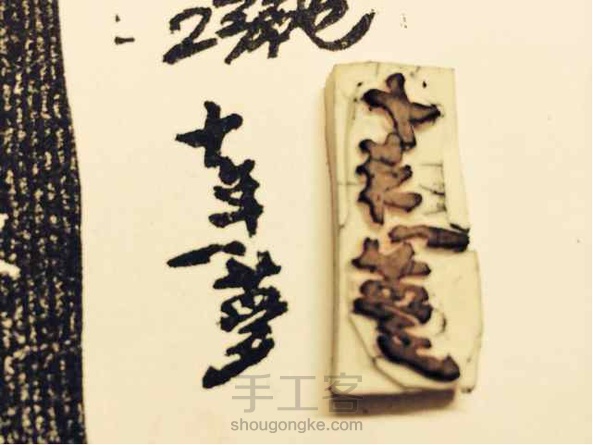 十年一夢
十年一夢
手工客
shougongke.com